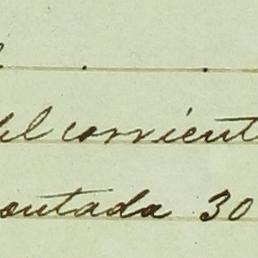 del corrient
ontada 30